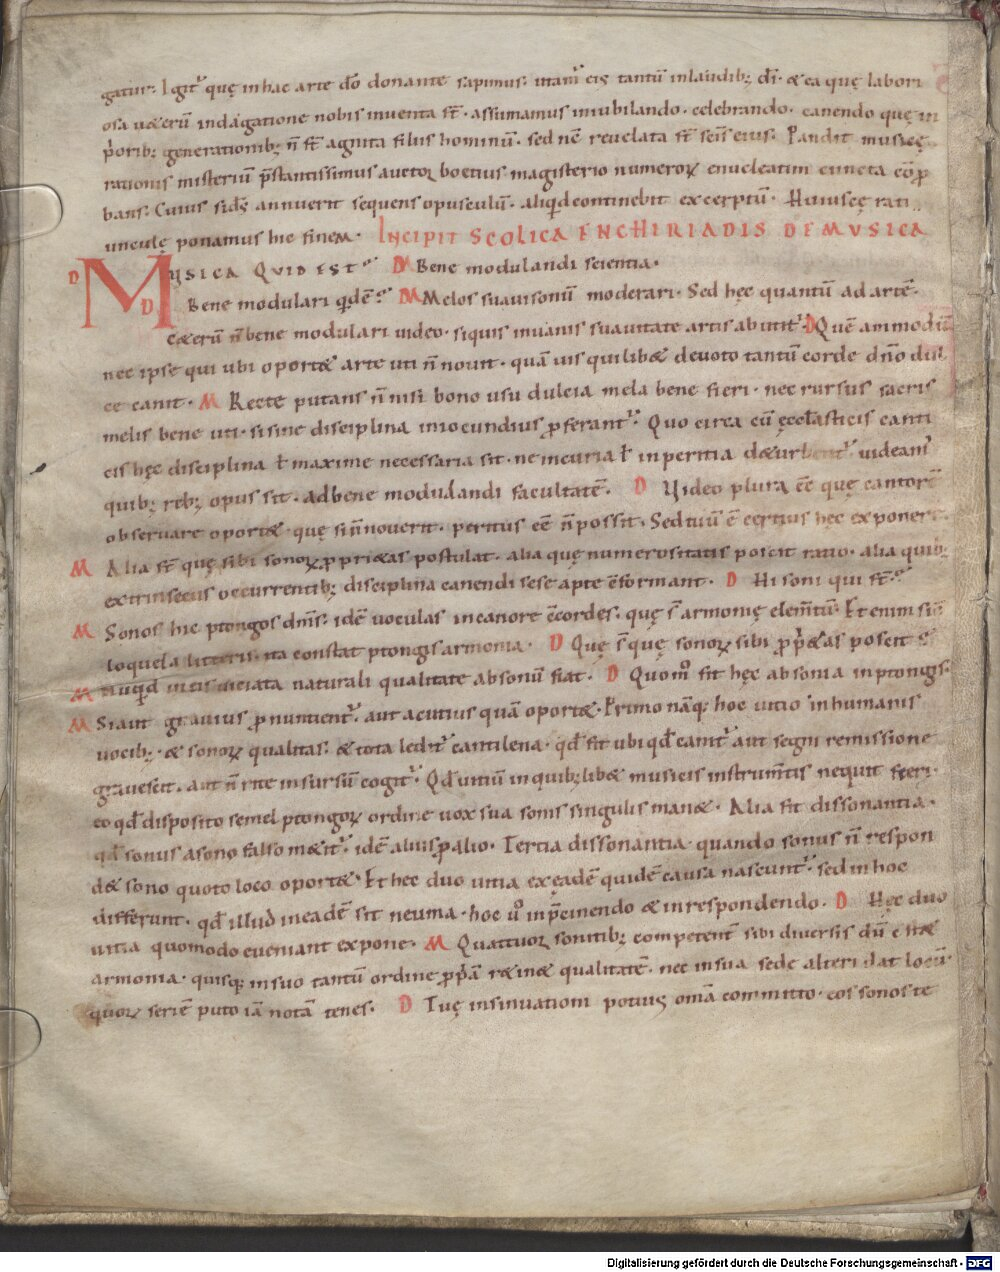 gatur. Igit᷑ quę in hac arte dō donante sapimus. utam᷑ eis tantū in laudib; dī. & ea quę labori
osa ueterū indagatione nobis inuenta st̄. assumamus in iubilando. celebrando. canendo quę in
p̄orib; generationib; n̄ st̄ agnita filiis hominū. sed nc̄ reuelata st̄ scīs eius. Pandit musicę
rationis misteriū p̄stantissimus auctor boetius magisterio numeroꝝ enucleatim cuncta cōp̄
bans. Cuius si dš annuerit sequens opusculū. aliqid continebit excerptū. Huiuscę rati
unculę ponamus hic finem. INCIPIT SCOLICA ENCHIRIADIS DE MUSICA
D MUSICA QUID EST? M Bene modulandi scientia.
D Bene modulari qd ē? M Melos suauisonū moderari. Sed hęc quantū ad artē.
Ceterū n̄ bene modulari uideo. siquis in uanis suauitate artis abutit᷑. D Quē ammodū
nec ipse qui ubi oport& arte uti n̄ nouit. quāuis quilib& deuoto tantū corde dn̄o dul
ce canit. M Recte putans n̄ nisi bono usu dulcia mela bene fieri. nec rursus sacris
melis bene uti. si sine disciplina iniocundius ꝓferant᷑. Quo circa cū ęcclasticis canti
cis hęc disciplina ł maxime necessaria sit. ne incuria ł inperitia d&urbent᷑. uideam᷑
quib; reb; opus sit. ad bene modulandi facultatē. D Video plura eē quę cantorē
obseruare oport&. quę si n̄ nouerit. peritus eē n̄ possit. Sed tuū ē certius hęc exponere.
M Alia st̄ quę sibi sonoꝝ ꝓpri&as postulat. alia quę numerositatis poscit ratio. alia quib;
extrinsecus occurrentib; disciplina canendi sese apte c̄formant. D Hi soni qui st̄?
M Sonos hic ptongos dīms. idē uoculas in canore c̄cordes. quę s̄ armonię elem̄tū. Et enim sic̄
loquela litteris. ita constat ptongis armonia. D Quę s̄ quę sonoꝝ sibi ꝓp&as poscit?
M uitiata naturali qualitate absonū fiat. D Quom̊ fit hęc absonia in ptongis.
M Si aut grauius ꝓnuntient᷑. aut acutius quā oport&. Primo nāq; hoc uitio in humanis
uocib;. & sonoꝝ qualitas. & tota ledit᷑ cantilena. qd fit ubi qd canit᷑ aut segni remissione
grauescit. aut n̄ rite in sursū cogit᷑. Qd uitiū in quib;lib& musicis instrum̄tis nequit fieri.
eo qd disposito semel ptongoꝝ ordine uox sua sonis singulis man&. Alia fit dissonantia.
qd sonus a sono falso m&it᷑. idē alius ꝓ alio. Tertia dissonantia. quando sonus n̄ respon
d& sono quoto loco oport&. Et hęc duo uitia ex eadē quidē causa nascunt᷑. sed in hoc
differunt. qd illud in eadē fit neuma. hoc ů in p̄cinendo & in respondendo. D Hęc duo
uitia quomodo eueniant expone. M Quattuor sonitib; competent᷑ sibi diuersis dū c st&
armonia. quisq; in suo tantū ordine ꝓp̄ā r&in& qualitatē. nec in sua sede alteri dat locū.
quoꝝ seriē puto iā notā tenes. D Tuę insinuationi potius om̄a committo. eos sonos te
Digitalisierung gefördert durch die Deutsche Forschungsgemeinschaft - DFG